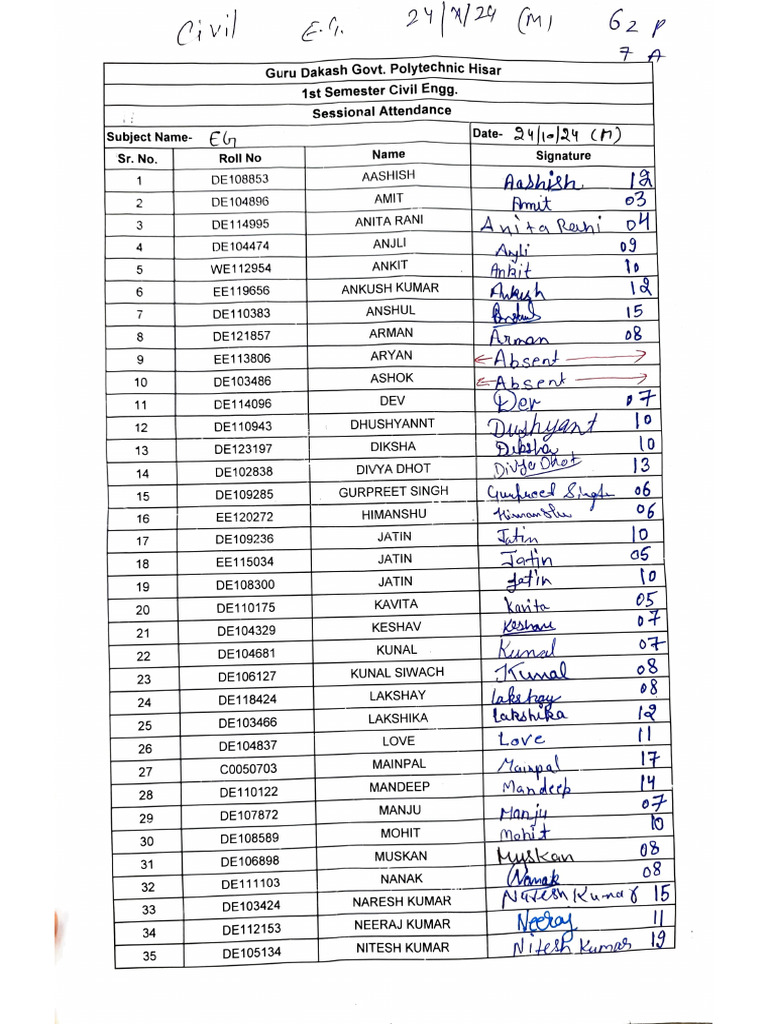 Civil E.G. 24/X/24 (M) 62 P
7 A
Guru Dakash Govt. Polytechnic Hisar
1st Semester Civil Engg.
Sessional Attendance
Subject Name- EG Date- 24/10/24 (M)
Sr. No. Roll No Name Signature
1 DE108853 AASHISH Aashish 12
2 DE104896 AMIT Amit 03
3 DE114995 ANITA RANI Anita Rani 04
4 DE104474 ANJLI Anjli 09
5 WE112954 ANKIT Ankit 10
6 EE119656 ANKUSH KUMAR Ankush 12
7 DE110383 ANSHUL Anshul 15
8 DE121857 ARMAN Arman 08
9 EE113806 ARYAN Absent
10 DE103486 ASHOK Absent
11 DE114096 DEV Dev 07
12 DE110943 DHUSHYANNT Dushyant 10
13 DE123197 DIKSHA Diksha 10
14 DE102838 DIVYA DHOT Divya Dhot 13
15 DE109285 GURPREET SINGH Gurpreet Singh 06
16 EE120272 HIMANSHU Himanshu 06
17 DE109236 JATIN Jatin 10
18 EE115034 JATIN Jatin 05
19 DE108300 JATIN Jatin 10
20 DE110175 KAVITA Kavita 05
21 DE104329 KESHAV Keshav 07
22 DE104681 KUNAL Kunal 07
23 DE106127 KUNAL SIWACH Kunal 08
24 DE118424 LAKSHAY lakshay 08
25 DE103466 LAKSHIKA Lakshika 12
26 DE104837 LOVE Love 11
27 C0050703 MAINPAL Mainpal 17
28 DE110122 MANDEEP Mandeep 14
29 DE107872 MANJU Manju 07
30 DE108589 MOHIT Mohit 10
31 DE106898 MUSKAN Muskan 08
32 DE111103 NANAK Nanak 08
33 DE103424 NARESH KUMAR Naresh Kumar 15
34 DE112153 NEERAJ KUMAR Neeraj 11
35 DE105134 NITESH KUMAR Nitesh Kumar 19